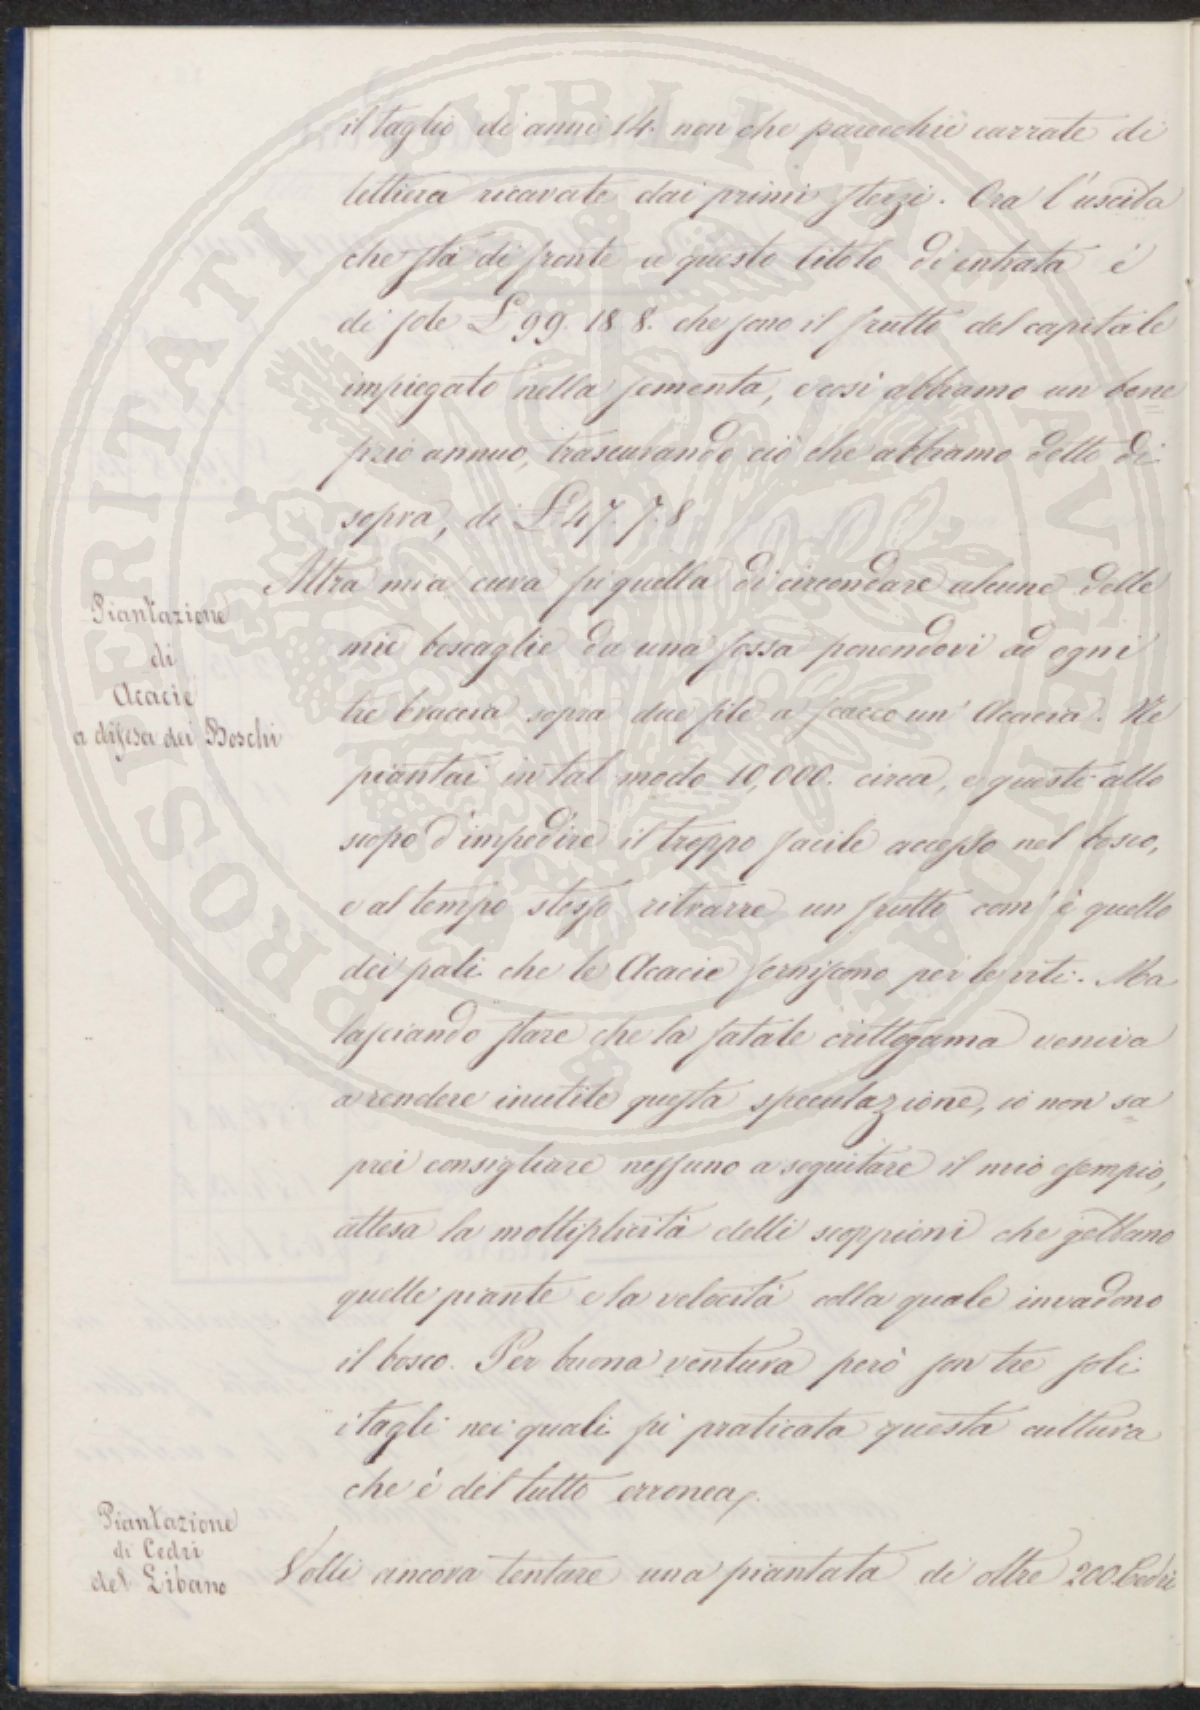 il taglio di anni 14. non che parecchie carrate di
lettiera ricavate dai primi sterzi. Ora l'uscita
che sta di fronte a questo titolo di entrata è
di sole £ 99. 18. 8. che sono il frutto del capitale
impiegato nella sementa, e così abbiamo un bene
fizio annuo, trascurando ciò che abbiamo detto di
sopra, di £ 47. 7. 8
Piantazione
di
Acacie
a difesa dei Boschi
Altra mia cura fu quella di circondare alcune delle
mie boscaglie da una fossa ponendovi ad ogni
tre braccia sopra due file a scacco un' Acacia. Ne
piantai in tal modo 10,000. circa, e questo allo
scopo d'impedire il troppo facile accesso nel bosco,
e al tempo stesso ritrarre un frutto com'è quello
dei pali che le Acacie forniscono per le viti. Ma
lasciando stare che la fatale crittogama veniva
a rendere inutile questa speculazione, io non sa
prei consigliare nessuno a seguitare il mio esempio,
attesa la moltiplicità delli scoppioni che gettano
quelle piante e la velocità colla quale invadono
il bosco. Per buona ventura però son tre soli
i tagli nei quali fu praticata questa cultura
che è del tutto erronea.
Piantazione
di Cedri
del Libano
Volli ancora tentare una piantata di oltre 200 Cedri
PROSPERITATI PVBLICAE AVGENDAE